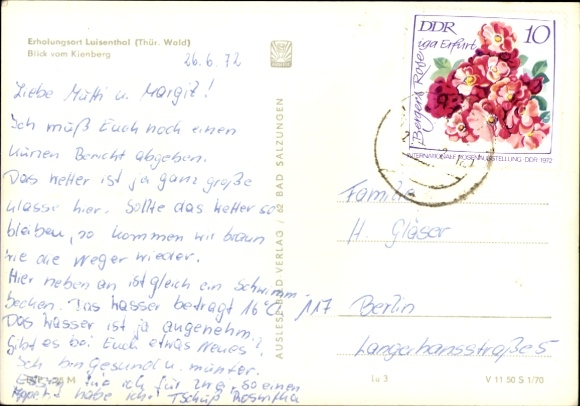 Erholungsort Luisenthal (Thür. Wald)
Blick vom Kienberg
26.6.72
Liebe Mutti u. Margit!
Ich muß Euch noch einen
kurzen Bericht abgeben.
Das Wetter ist ja ganz große
Klasse hier. Sollte das Wetter so
bleiben, so kommen wir braun
wie die Neger wieder.
Hier neben an ist gleich ein Schwimm-
becken. Das Wasser beträgt 16°C.
Das Wasser ist ja angenehm.
Gibt es bei Euch etwas Neues?
Ich bin gesund u. munter.
Essen tue ich für zwei. So einen
Appetit habe ich. Tschüß
AUSLESE-BILD-VERLAG 62 BAD SALZUNGEN
DDR 10
iga Erfurt
Bergers Rose
INTERNATIONALE ROSENAUSSTELLUNG · DDR 1972
Familie
H. Gläser
117 Berlin
Langerhansstraße 5
1u 3
V 11 50 S 1/70